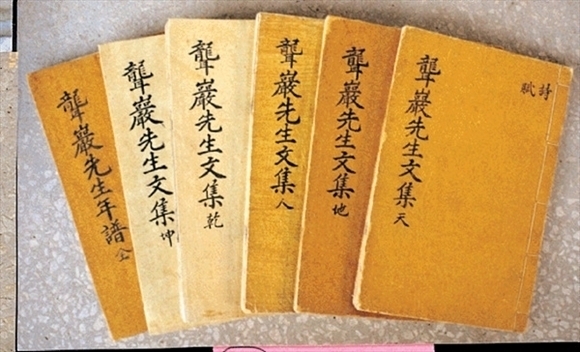 詩賦
聾巖先生文集 天
聾巖先生文集 地
聾巖先生文集 人
聾巖先生文集 乾
聾巖先生文集 坤
聾巖先生年譜 全